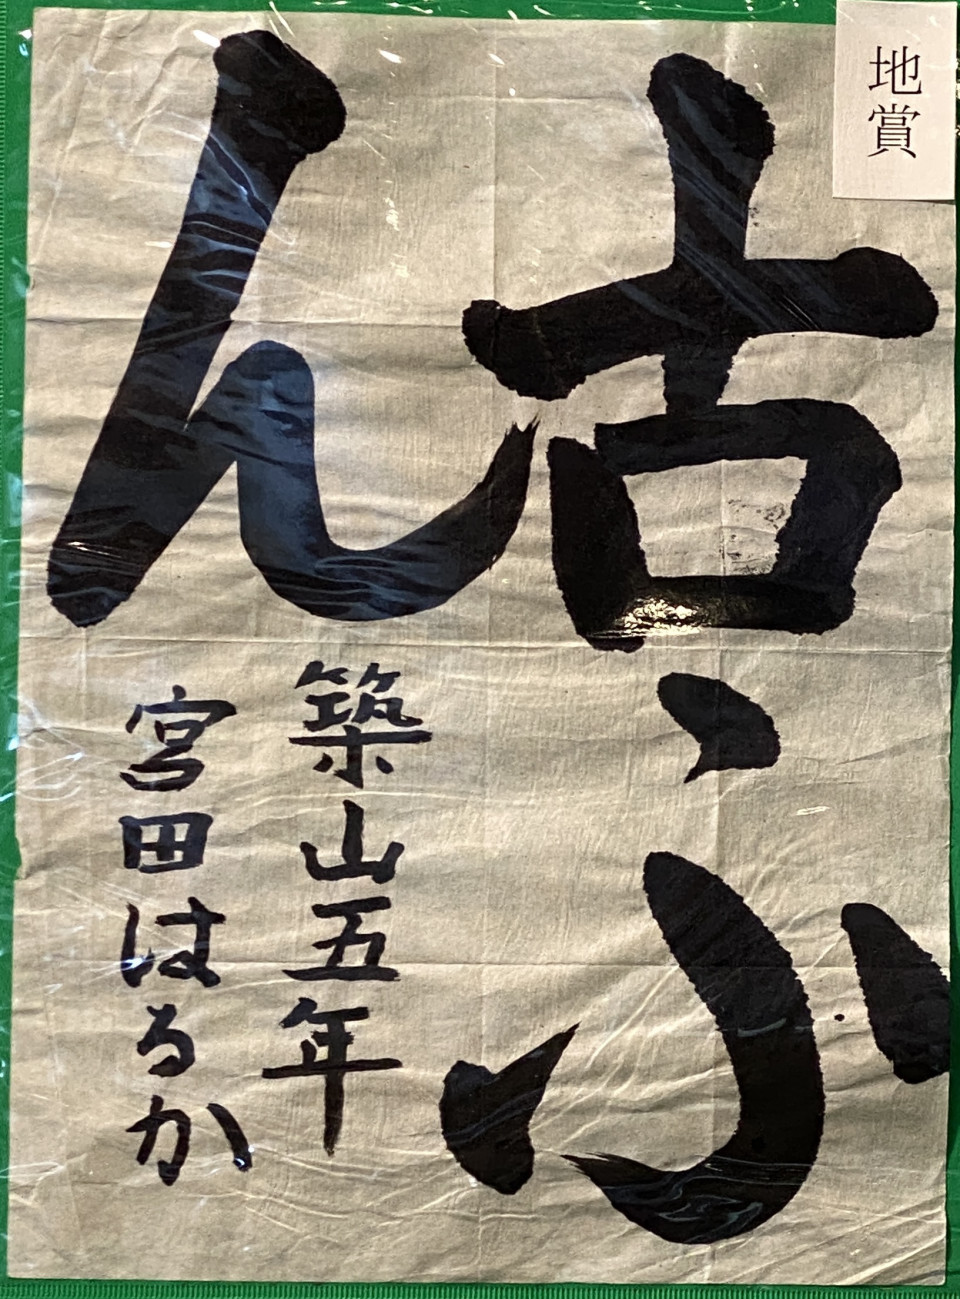 地賞
古ふん
築山五年
宮田はるか